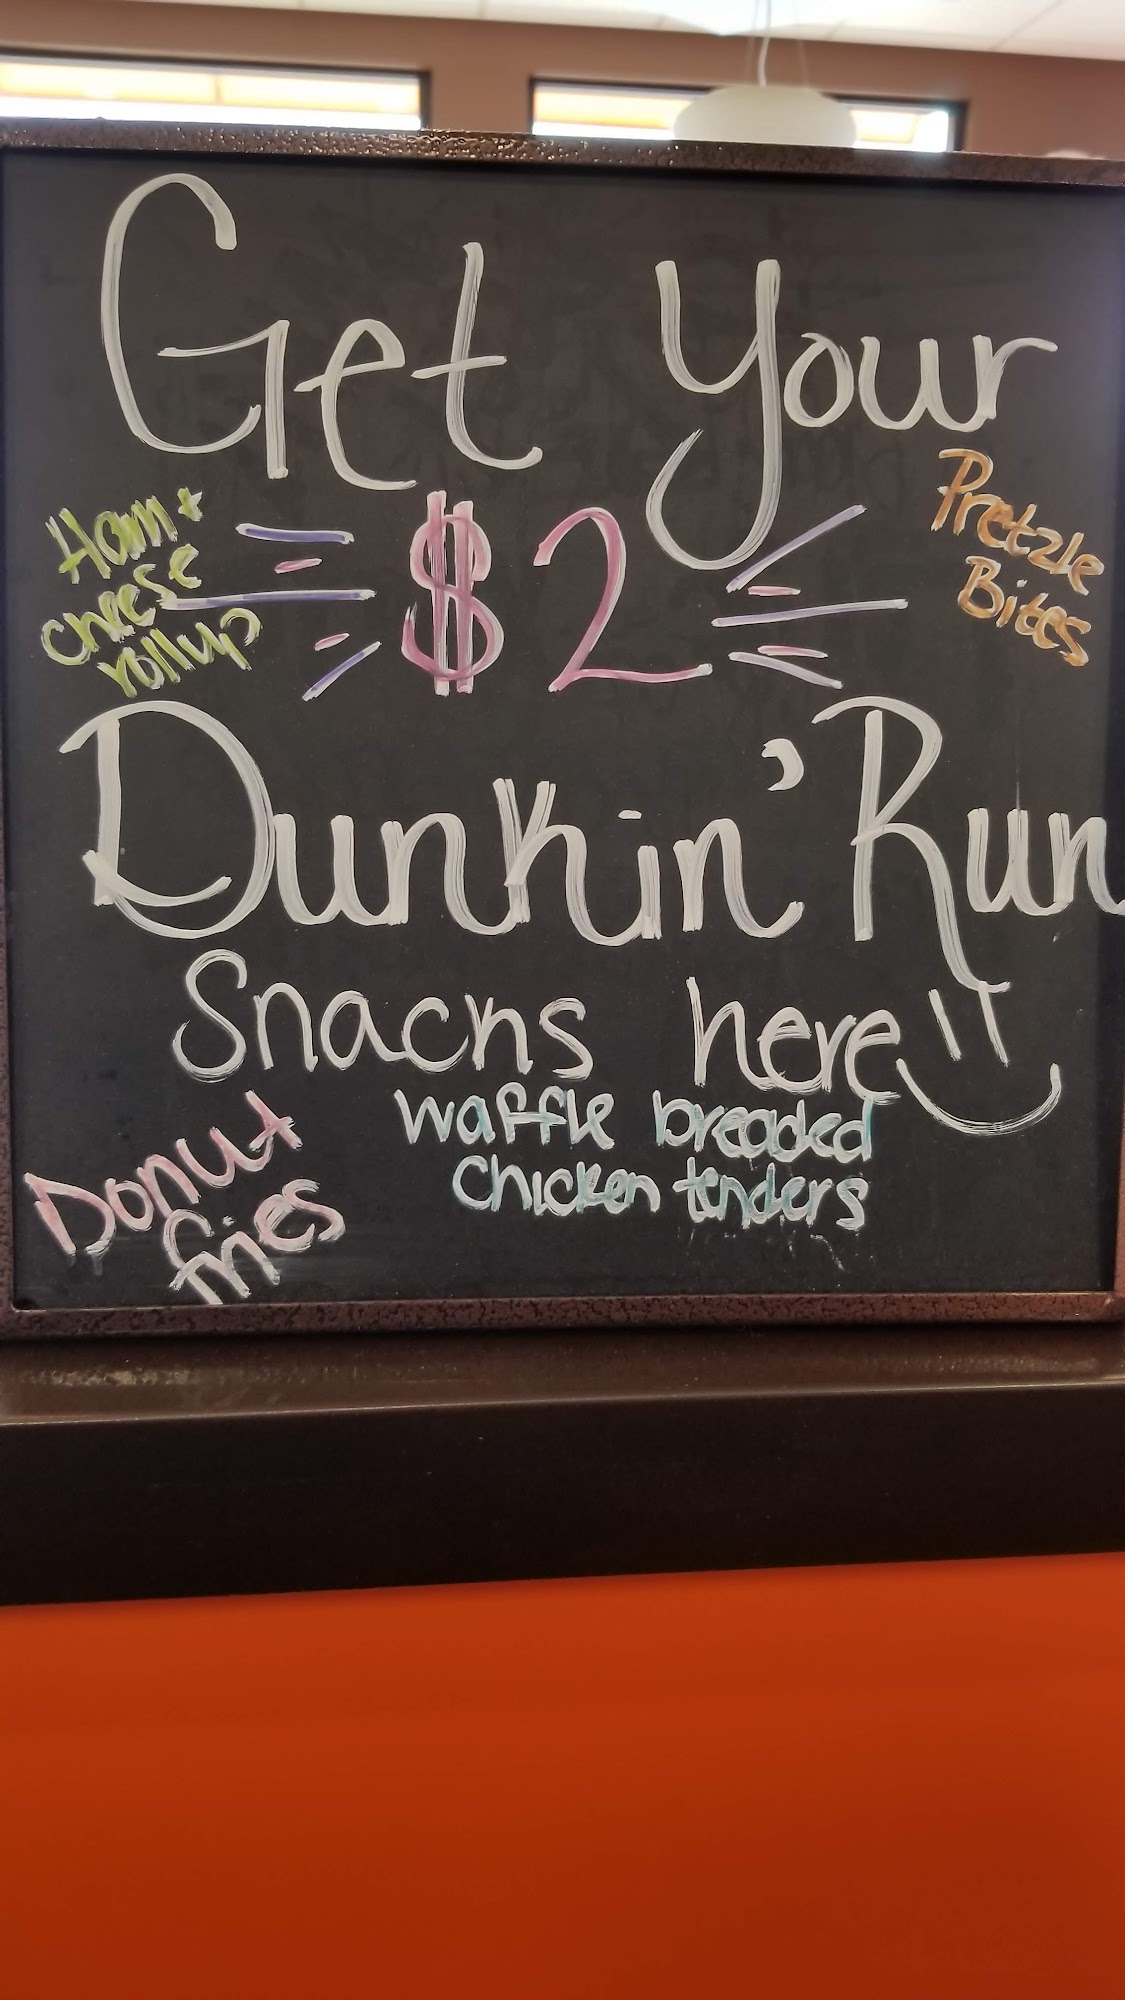 Get Your
Ham +
cheese
rollup
$2
Pretzle
Bites
Dunkin' Run
Snacks here
waffle breaded
chicken tenders
Donut
fries